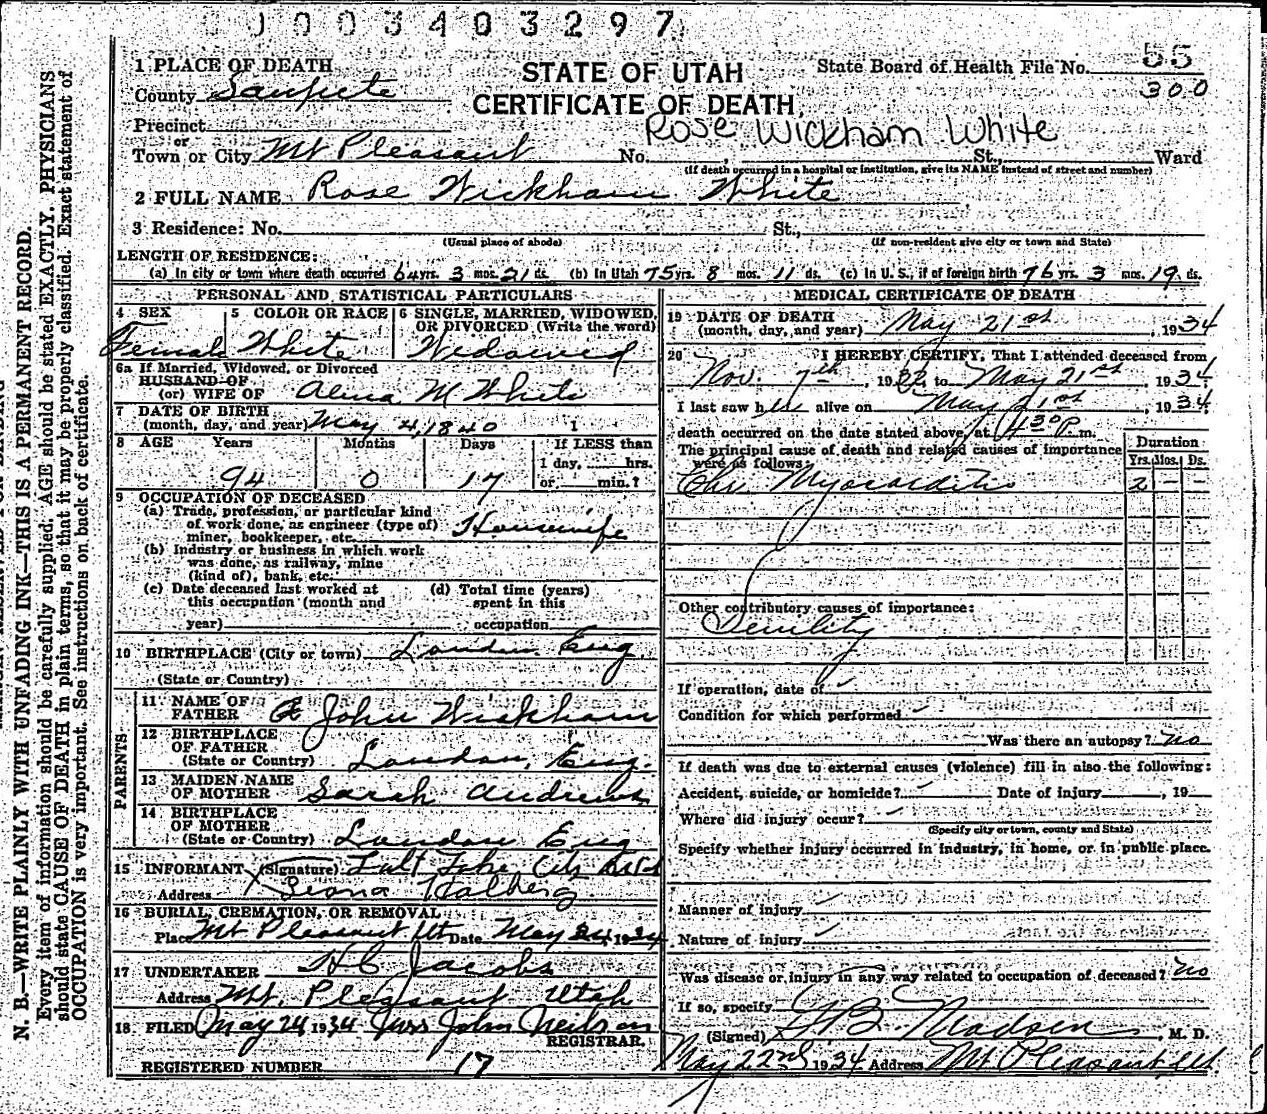 0003403297
1 PLACE OF DEATH
STATE OF UTAH
State Board of Health File No. 55
County Sanpete
CERTIFICATE OF DEATH
300
Precinct
Rose Wickham White
or
Town or City Mt Pleasant No. , St., Ward
(If death occurred in a hospital or institution, give its NAME instead of street and number)
2 FULL NAME Rose Wickham White
3 Residence: No. St.,
(Usual place of abode) (If non-resident give city or town and State)
LENGTH OF RESIDENCE:
(a) In city or town where death occurred 64 yrs. 3 mos. 21 ds. (b) In Utah 75 yrs. 8 mos. 11 ds. (c) In U. S., if of foreign birth 76 yrs. 3 mos. 19 ds.
PERSONAL AND STATISTICAL PARTICULARS
4 SEX 5 COLOR OR RACE 6 SINGLE, MARRIED, WIDOWED, OR DIVORCED (Write the word)
Female White Widowed
6a If Married, Widowed, or Divorced
HUSBAND OF
(or) WIFE OF M White
7 DATE OF BIRTH
(month, day, and year) May 4, 1840
8 AGE Years Months Days If LESS than
1 day, hrs.
94 0 17 or min.?
9 OCCUPATION OF DECEASED
(a) Trade, profession, or particular kind
of work done, as engineer (type of)
miner, bookkeeper, etc. Housewife
(b) Industry or business in which work
was done, as railway, mine
(kind of), bank, etc.
(c) Date deceased last worked at
this occupation (month and
year)
(d) Total time (years)
spent in this
occupation
10 BIRTHPLACE (City or town) London Eng
(State or Country)
PARENTS
11 NAME OF
FATHER John Wickham
12 BIRTHPLACE
OF FATHER
(State or Country) London, Eng.
13 MAIDEN NAME
OF MOTHER Sarah Andrews
14 BIRTHPLACE
OF MOTHER
(State or Country) London Eng
15 INFORMANT (Signature) Salt Lake City
Address Halberg
16 BURIAL, CREMATION, OR REMOVAL
Place Mt Pleasant Ut Date May 24, 1934
17 UNDERTAKER H C Jacobs
Address Mt. Pleasant Utah
18 FILED May 24 1934 John Neilson
REGISTRAR.
REGISTERED NUMBER 17
MEDICAL CERTIFICATE OF DEATH
19 DATE OF DEATH
(month, day, and year) May 21st, 1934
20 I HEREBY CERTIFY, That I attended deceased from
Nov. 7th, 19 to May 21st 1934.
I last saw her alive on May 21st, 1934.
death occurred on the date stated above, at 430 P. m.
The principal cause of death and related causes of importance
were as follows:
Duration
Yrs. Mos. Ds.
Chr. Myocarditis 2 – –
Other contributory causes of importance:
Senility
If operation, date of
Condition for which performed
Was there an autopsy? no
If death was due to external causes (violence) fill in also the following:
Accident, suicide, or homicide? Date of injury , 19
Where did injury occur?
(Specify city or town, county and State)
Specify whether injury occurred in industry, in home, or in public place.
Manner of injury
Nature of injury
Was disease or injury in any way related to occupation of deceased? no
If so, specify
(Signed) Madsen, M. D.
May 22nd 1934 Address Mt Pleasant, Ut
N. B.—WRITE PLAINLY WITH UNFADING INK—THIS IS A PERMANENT RECORD.
Every item of information should be carefully supplied. AGE should be stated EXACTLY. PHYSICIANS
should state CAUSE OF DEATH in plain terms, so that it may be properly classified. Exact statement of
OCCUPATION is very important. See instructions on back of certificate.